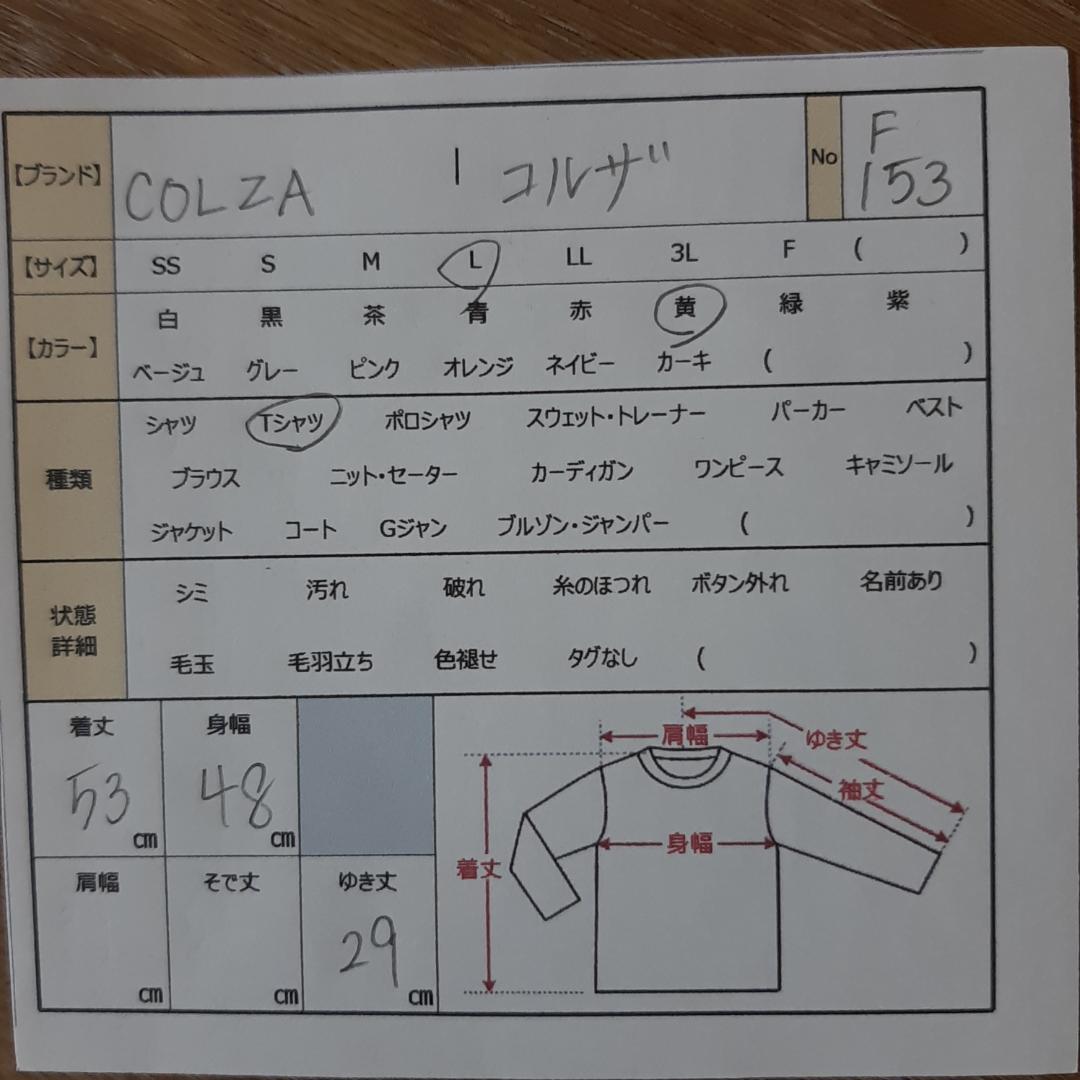 【ブランド】 COLZA | コルザ No F 153
【サイズ】 SS S M L LL 3L F ( )
【カラー】 白 黒 茶 青 赤 黄 緑 紫
ベージュ グレー ピンク オレンジ ネイビー カーキ ( )
種類 シャツ Tシャツ ポロシャツ スウェット・トレーナー パーカー ベスト
ブラウス ニット・セーター カーディガン ワンピース キャミソール
ジャケット コート Gジャン ブルゾン・ジャンパー ( )
状態詳細 シミ 汚れ 破れ 糸のほつれ ボタン外れ 名前あり
毛玉 毛羽立ち 色褪せ タグなし ( )
着丈 身幅
53 cm 48 cm
肩幅 そで丈 ゆき丈
cm cm 29 cm
肩幅 ゆき丈
袖丈
身幅
着丈